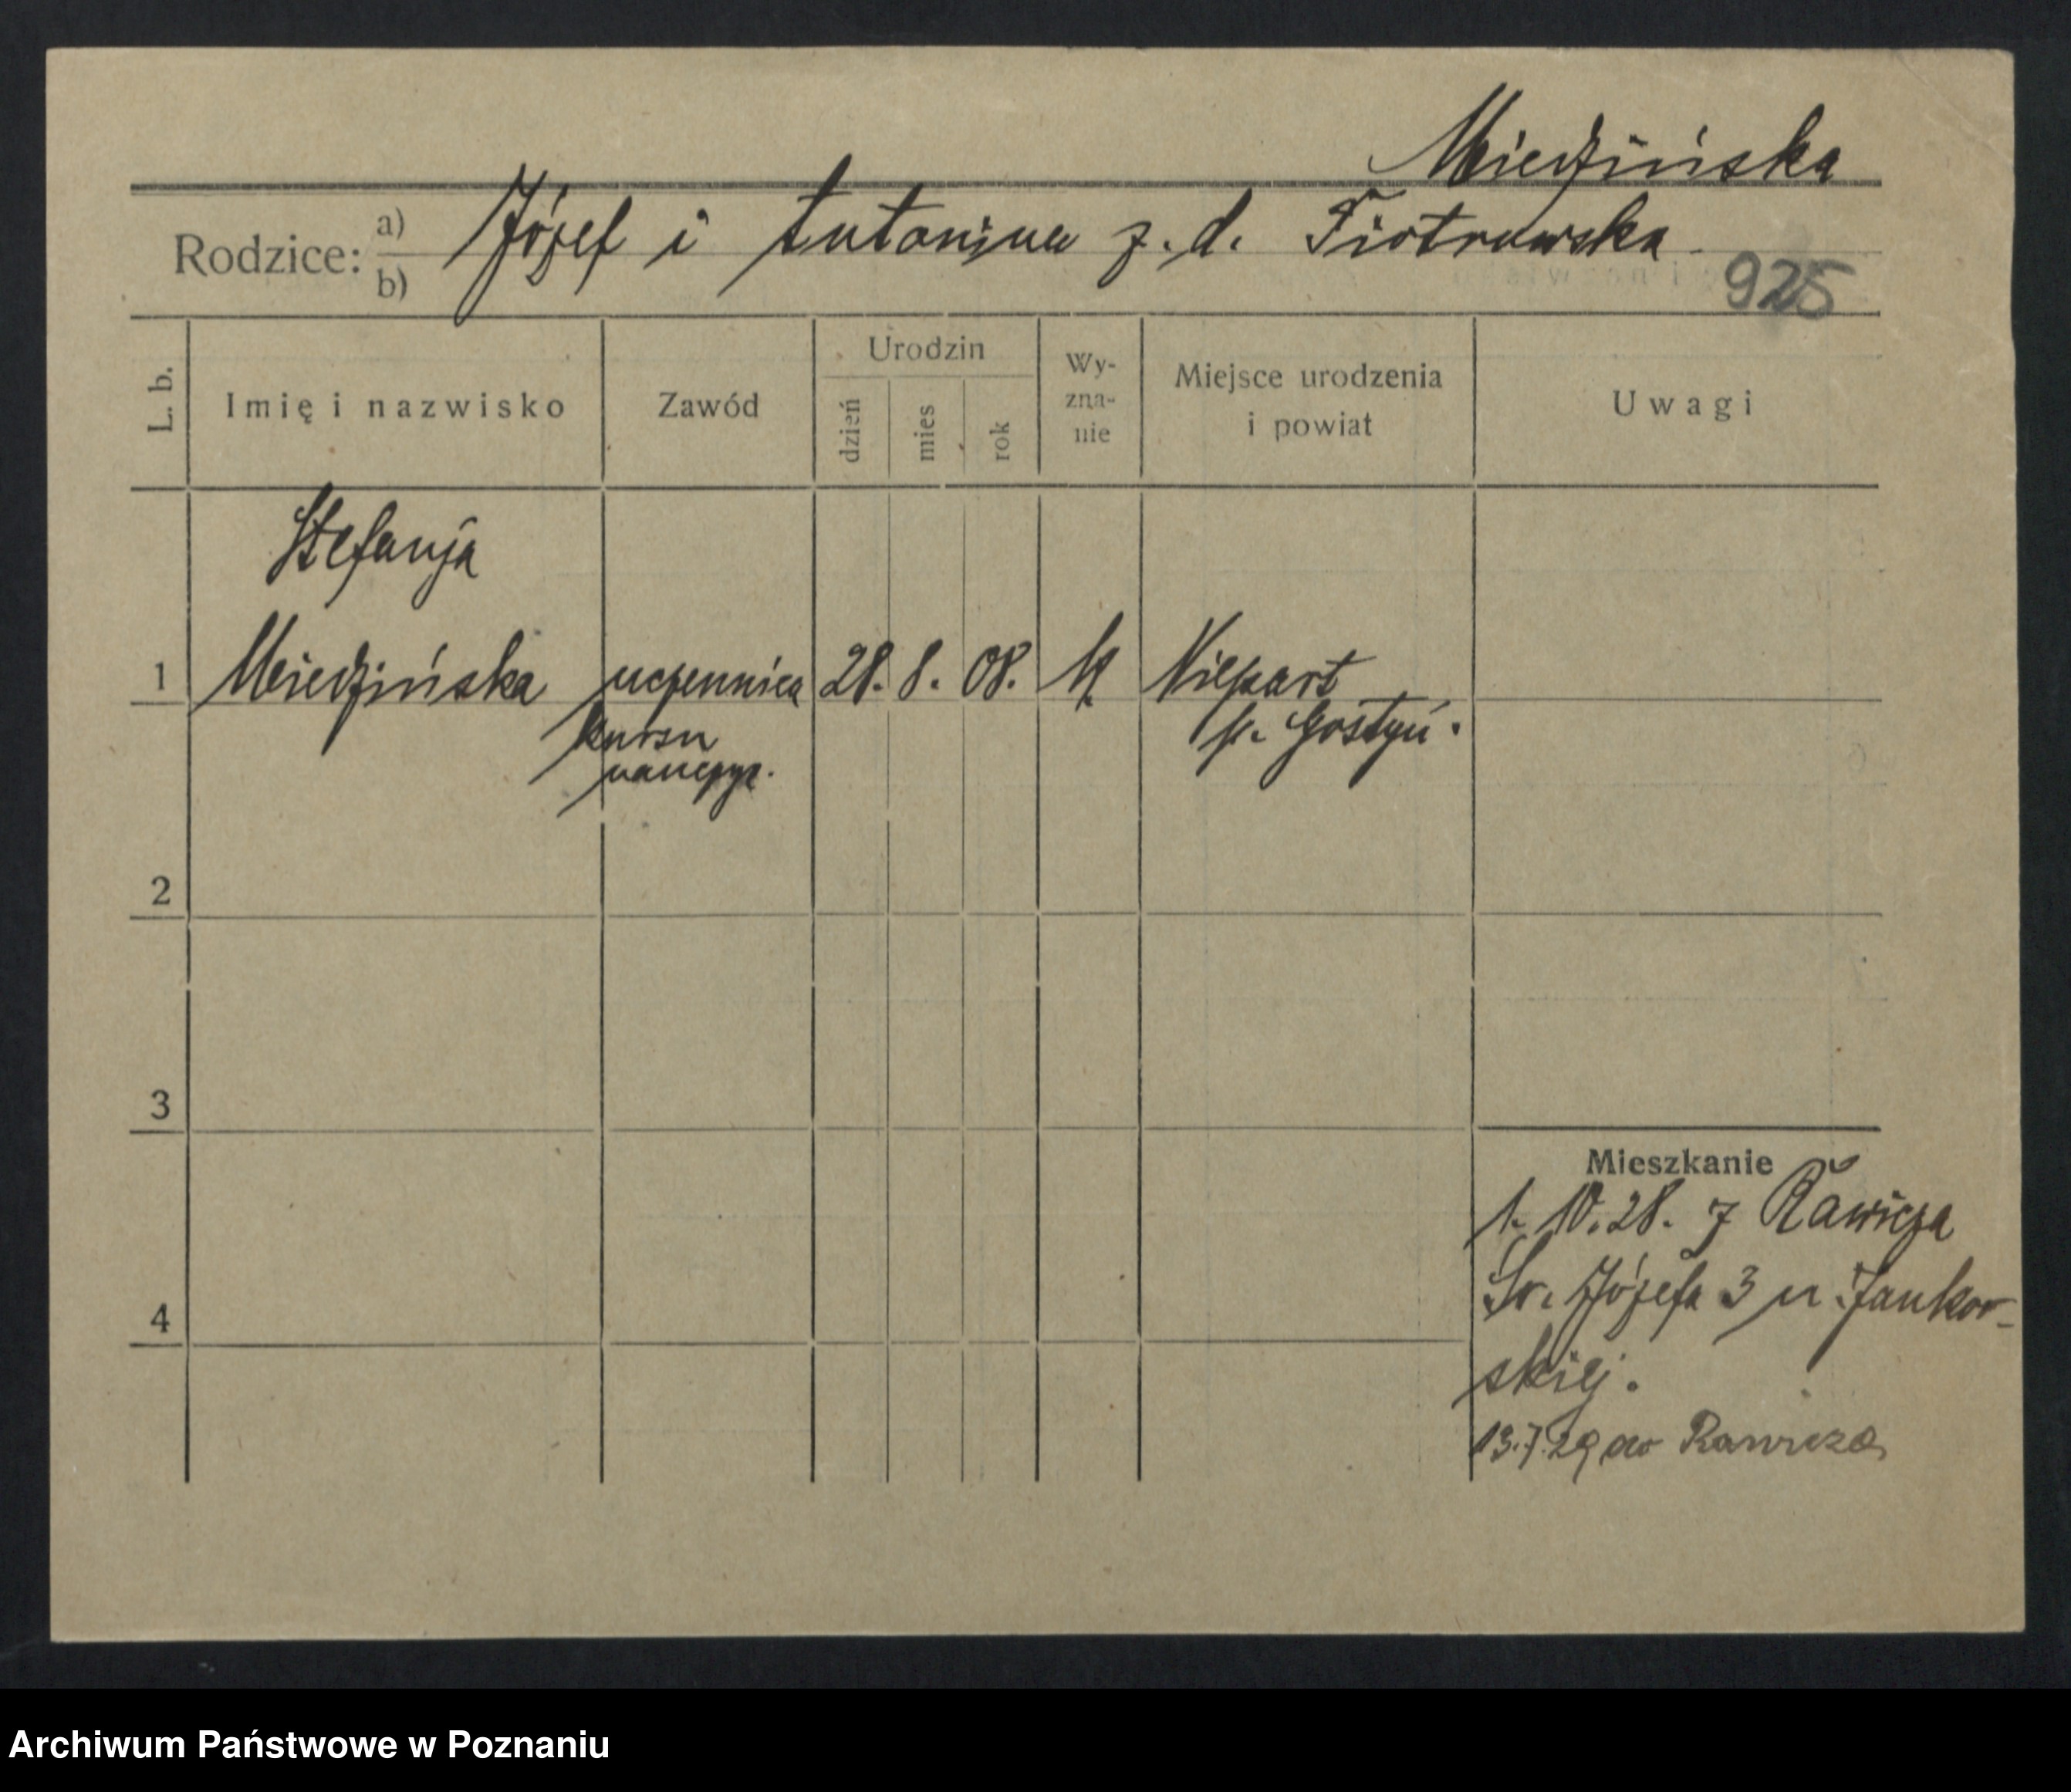 Miedzińska
Rodzice: a) b) Józef i Antonina z. d. Piotrowska
925
L. b. Imię i nazwisko Zawód Urodzin dzień mies. rok Wy-zna-nie Miejsce urodzenia i powiat Uwagi
Stefanja
1 Miedzińska uczennica 28. 8. 08. Niepart
kursu p. Gostyń.
nauczyc.
2
3
Mieszkanie
1. 10. 28. z Rawicza
Św. Józefa 3 u Jankow-
4
skiej.
13.7.29 do Rawicza
Archiwum Państwowe w Poznaniu